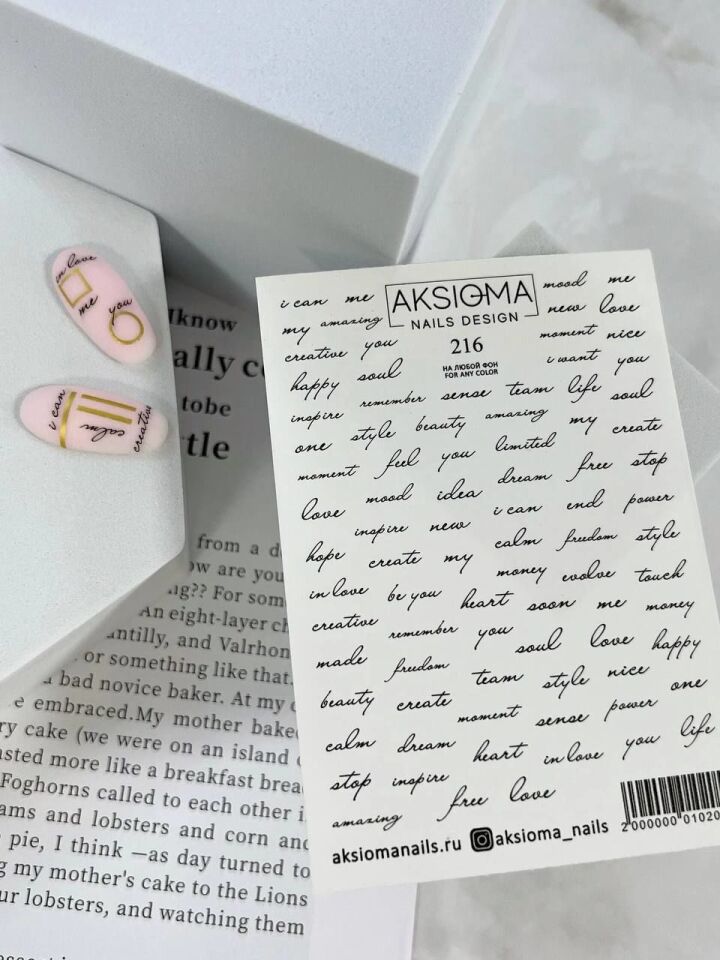 in love
me you
i can
calm
creative
i can me
AKSIOMA
mood me
my amazing
NAILS DESIGN
new love
creative you
216
moment nice
happy soul
НА ЛЮБОЙ ФОН
FOR ANY COLOR
i want you
inspire remember sense team life soul
one style beauty amazing my create
moment feel you limited
love mood idea dream free stop
inspire new i can end power
hope create my calm freedom style
in love be you money evolve touch
creative heart soon me money
made remember you soul love happy
beauty freedom team style nice
create moment sense power one
calm dream heart in love you life
stop inspire
amazing free love
aksiomanails.ru aksioma_nails
2 000000 01020
Iknow
ally
tobe
tle
from a
ow are you
ng?? For som
An eight-layer
antilly, and Valrhon
or something like that.
bad novice baker. At my
e embraced.My mother bake
ry cake (we were on an island
asted more like a breakfast brea
Foghorns called to each other
ams and lobsters and corn and
pie, I think —as day turned to
g my mother's cake to the Lions
ur lobsters, and watching them